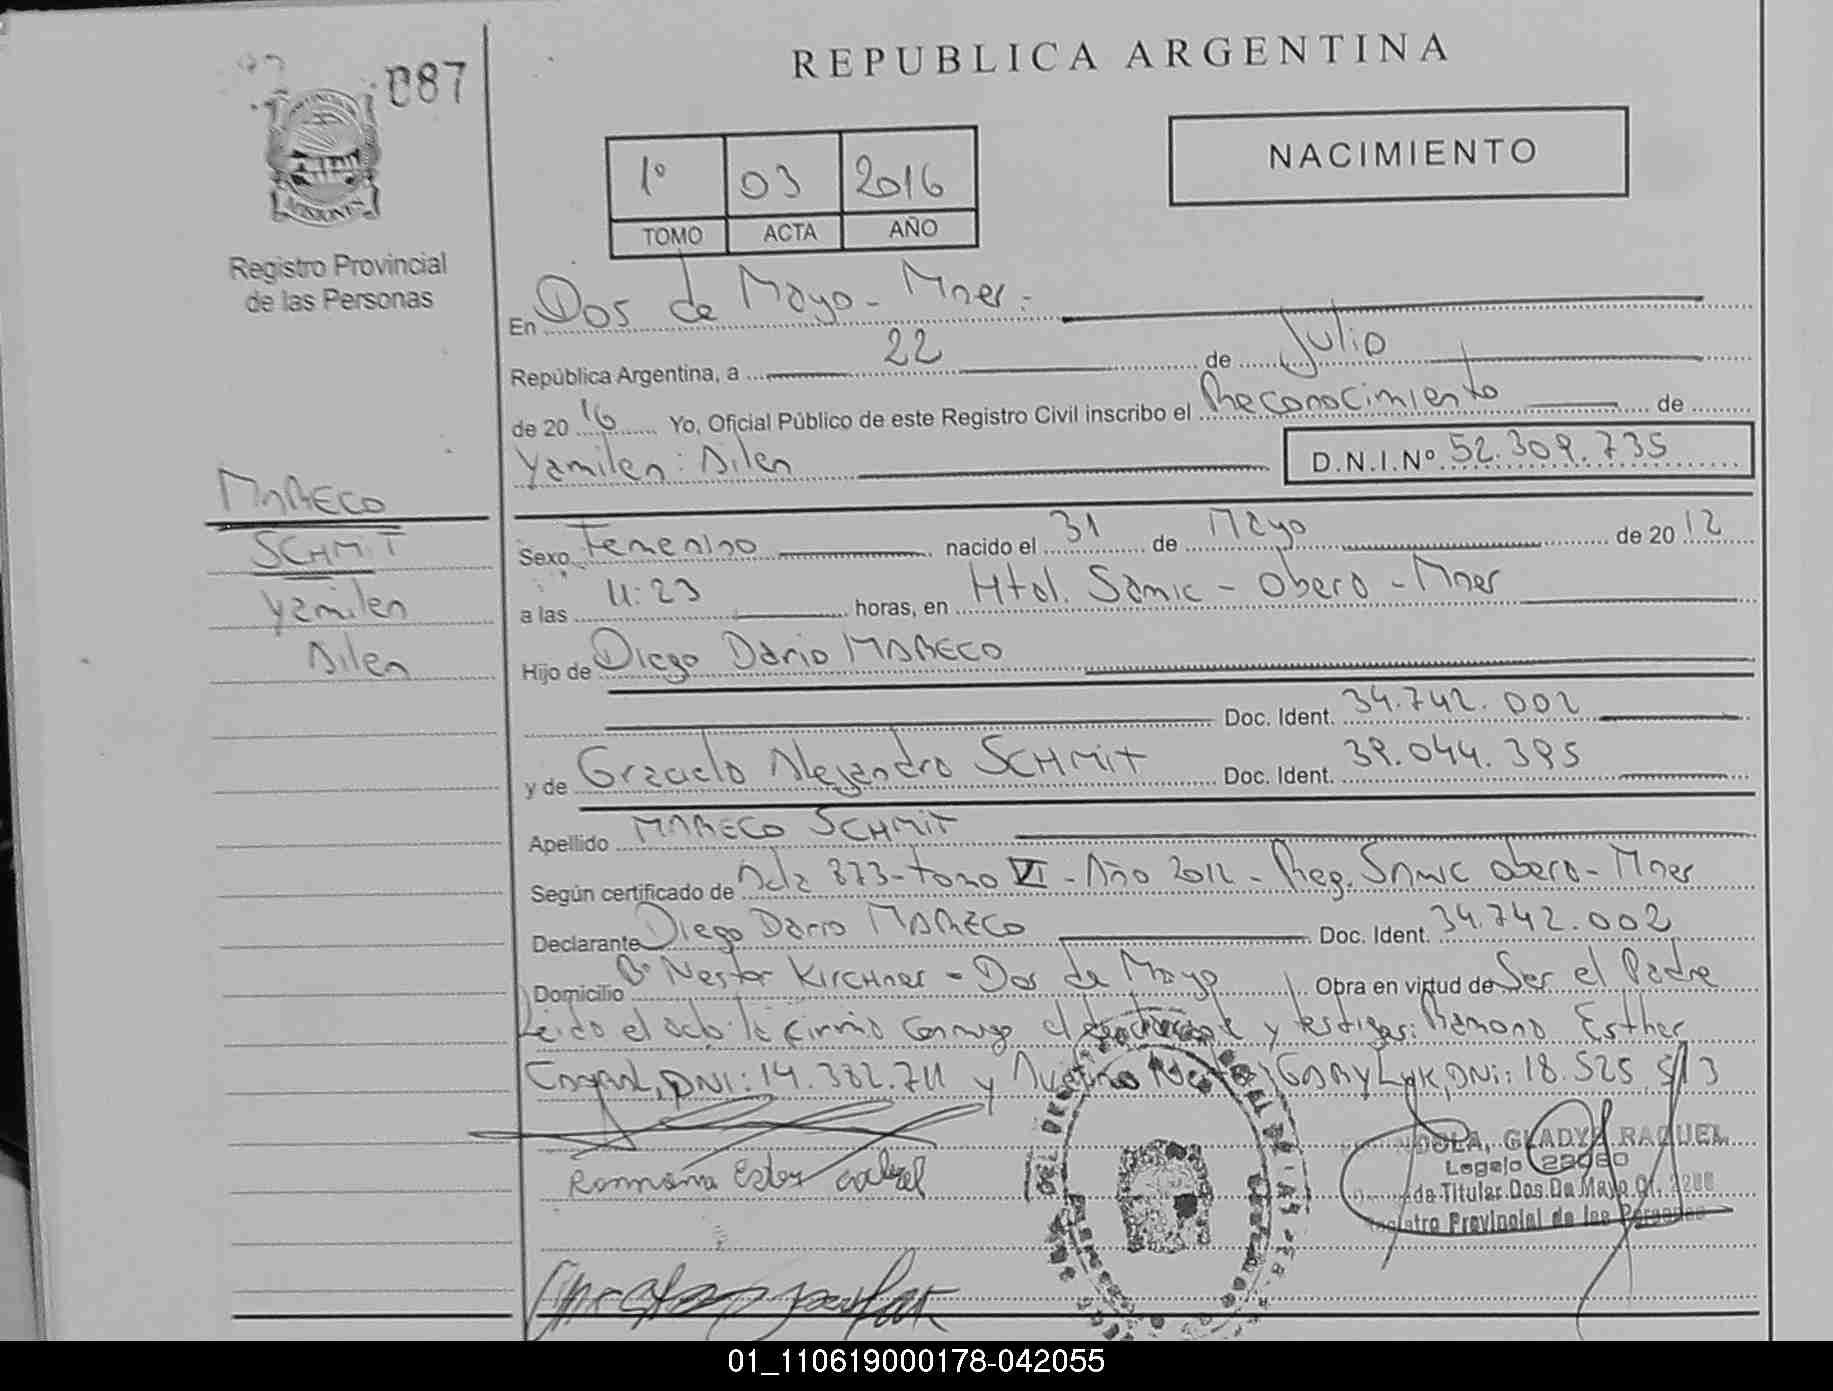 087
REPUBLICA ARGENTINA
NACIMIENTO
1º 03 2016
TOMO ACTA AÑO
MISIONES
Registro Provincial
de las Personas
En Dos de Mayo - Mnes.
República Argentina, a 22 de Julio
de 2016 Yo, Oficial Público de este Registro Civil inscribo el Reconocimiento de
Yamilen Ailen D.N.I.Nº 52.309.735
MARECO
SCHMIT
Yamilen
Ailen
Sexo Femenino nacido el 31 de Mayo de 2012
a las 11:23 horas, en Htal. Samic - Obera - Mnes
Hijo de Diego Dario MARECO
Doc. Ident. 34.742.002
y de Graciela Alejandra SCHMIT Doc. Ident. 39.044.395
Apellido MARECO SCHMIT
Según certificado de Acta 273 - tomo VI - Año 2012 - Reg. Samic Obera - Mnes
Declarante Diego Dario MARECO Doc. Ident. 34.742.002
Domicilio Bº Nestor Kirchner - Dos de Mayo Obra en virtud de Ser el Padre
Leido el acta la firma conmigo el y testigos: Ramona Esther
DNI: 14.382.711 y DNI: 18.525.513
Rammona Ester cabral
GLADYS RAQUEL
Legajo
Titular Dos De Mayo
Registro Provincial de las Personas
01_110619000178-042055